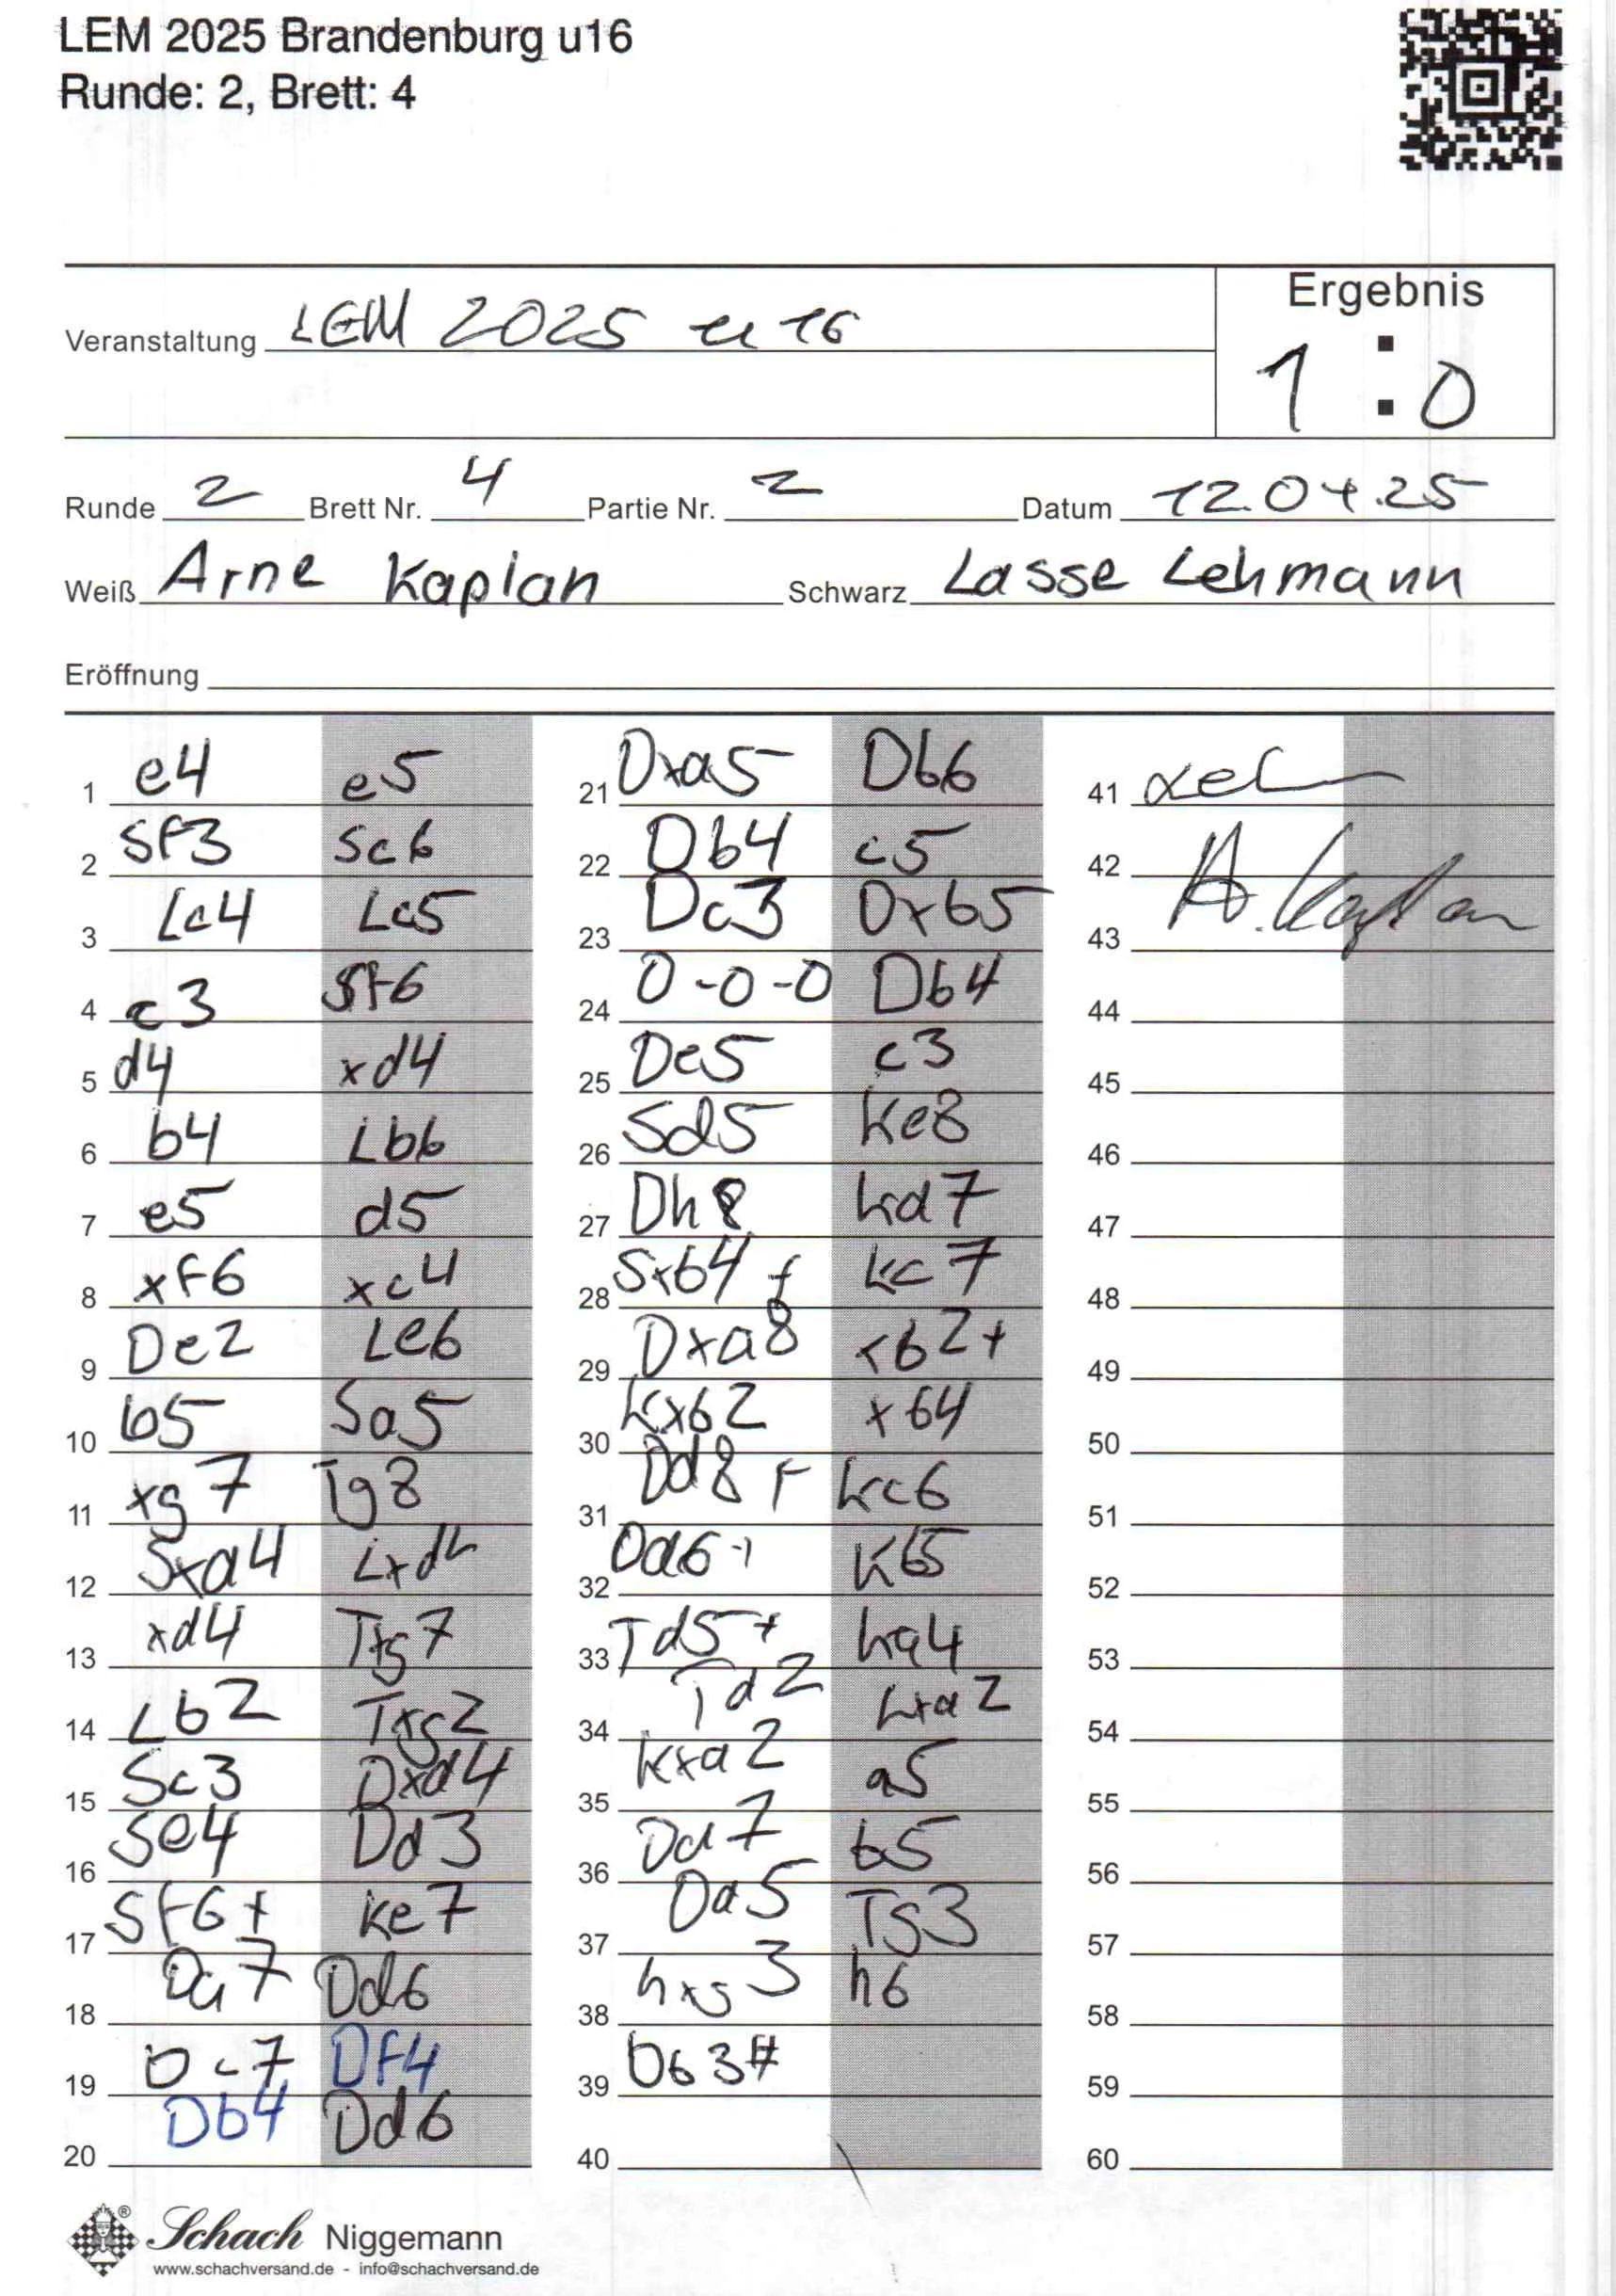 LEM 2025 Brandenburg u16
Runde: 2, Brett: 4
Ergebnis
Veranstaltung LEM 2025 u 16
1 : 0
Runde 2 Brett Nr. 4 Partie Nr. 2 Datum 12.04.25
Weiß Arne Kaplan Schwarz Lasse Lehmann
Eröffnung
1 e4 e5
2 Sf3 Sc6
3 Lc4 Lc5
4 c3 Sf6
5 d4 xd4
6 b4 Lb6
7 e5 d5
8 xf6 xc4
9 De2 Le6
10 b5 Sa5
11 xg7 Tg8
12 Sxd4 Lxd4
13 xd4 Txg7
14 Lb2 Txg2
15 Sc3 Dxd4
16 Se4 Dd3
17 Sf6+ Ke7
18 Da7 Dd6
19 Dc7 Df4
20 Db4 Dd6
21 Dxa5 Db6
22 Db4 c5
23 Dc3 Dxb5
24 0-0-0 Db4
25 De5 c3
26 Sd5 Ke8
27 Dh8 Kd7
28 Sxb4+ Kc7
29 Dxa8 xb2+
30 Kxb2 xb4
31 Dd8+ Kc6
32 Dd6+ Kb5
33 Td5+ Ka4
34 Td2 Lxa2
35 Kxa2 a5
36 Dd7 b5
37 Da5 Tg3
38 hxg3 h6
39 Db3#
40
41
42 A. Kaplan
43
44
45
46
47
48
49
50
51
52
53
54
55
56
57
58
59
60
Schach Niggemann
www.schachversand.de - info@schachversand.de